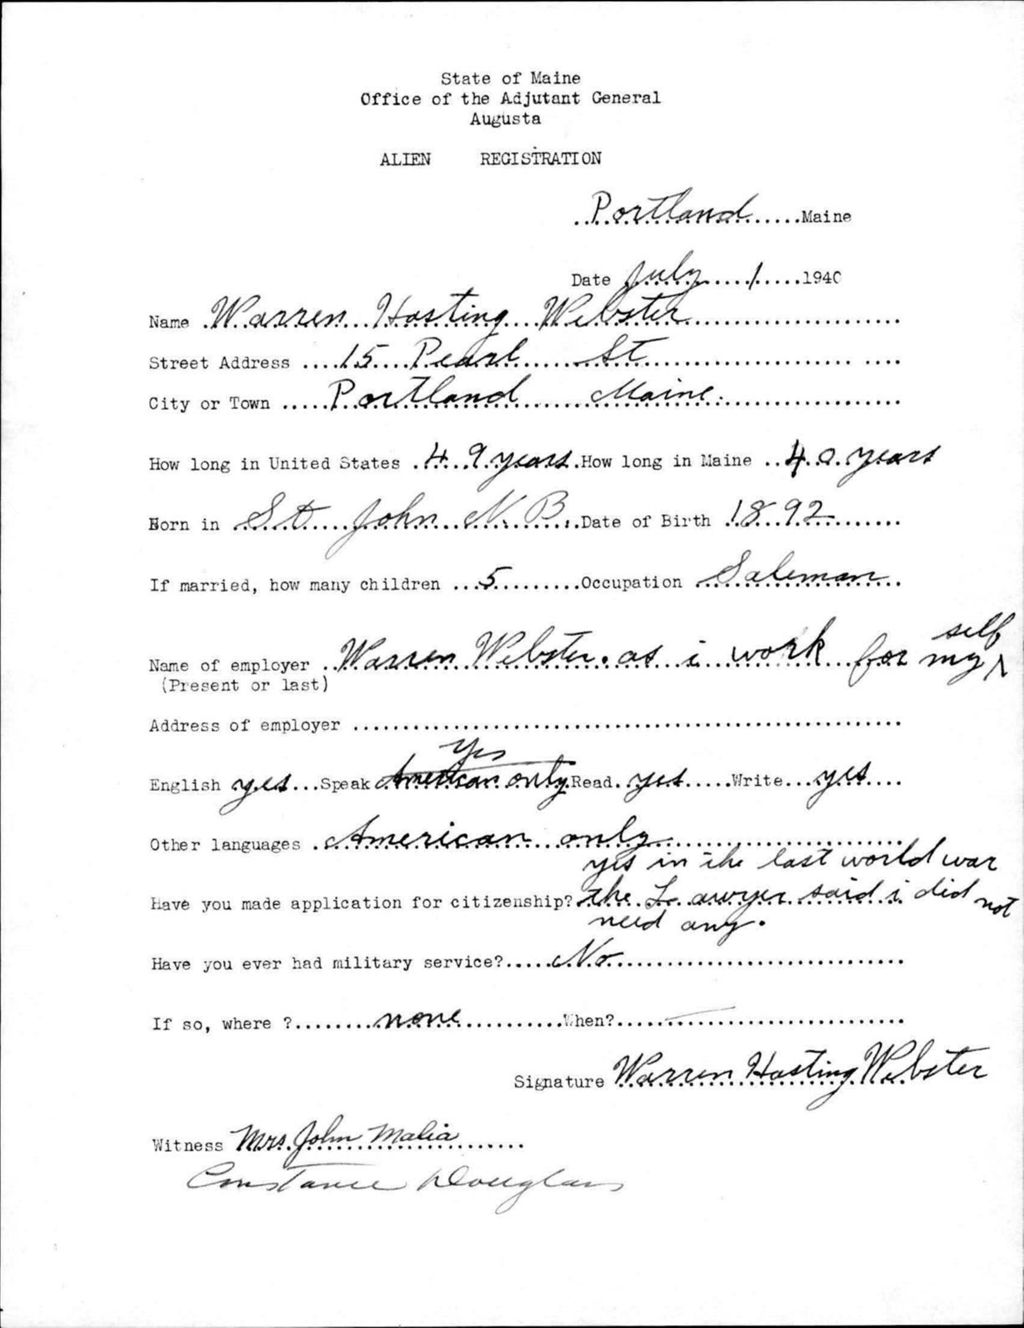 State of Maine
Office of the Adjutant General
Augusta
ALIEN REGISTRATION
Portland Maine
Date July 1 1940
Name Warren Hasting Webster
Street Address 15 Pearl St
City or Town Portland Maine.
How long in United States 49 years How long in Maine 40 years
Born in St John N. B. Date of Birth 1892
If married, how many children 5 Occupation Saleman
self
Name of employer Warren Webster. as i work for my
(Present or last)
Address of employer
Yes
English yes Speak American only Read yes Write yes
Other languages American only
yes in the last world war
Have you made application for citizenship? the Lawyer said i did not
need any.
Have you ever had military service? No
If so, where ? none When?
Signature Warren Hasting Webster
Witness Mrs. John Malia
Constance Douglass